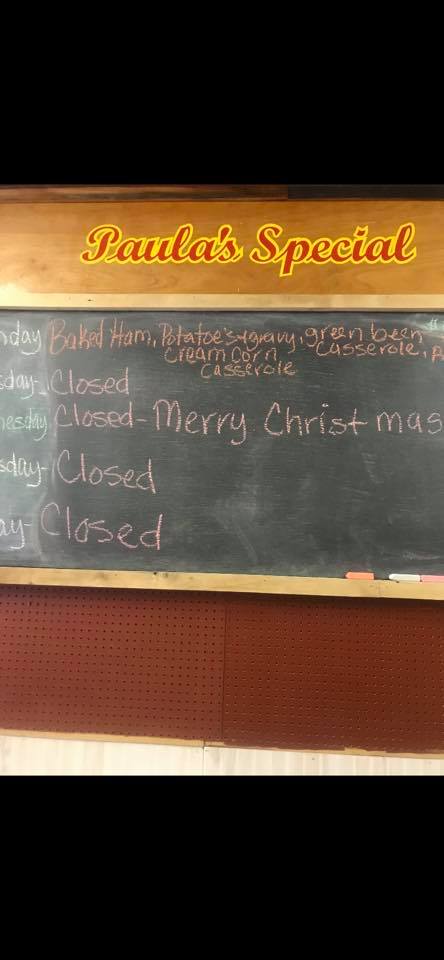 Paula's Special
nday Baked Ham, Potatoe's + gravy, green been
Cream Corn Casserole,
Casserole
sday- Closed
nesday Closed - Merry Christmas
sday- Closed
ay- Closed